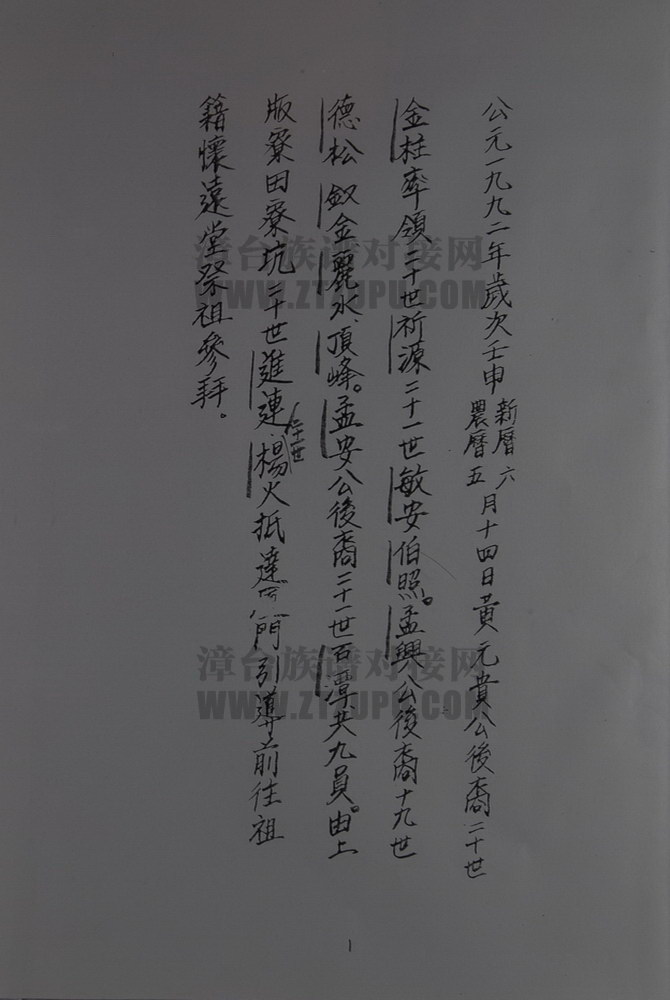 公元一九九二年歲次壬申新曆六農曆五月十四日黃元貴公後裔二十世
金柱率領二十世祈源二十一世敏安伯照。孟興公後裔十九世
德松釵金麗水、頂峰。孟安公後裔二十一世石潭共九員。由上
版寮田寮坑二十世進連、二十一世楊火抵達廈門引導前往祖
籍懷遠堂祭祖參拜。
漳台族谱对接网
WWW.ZTZUPU.COM
漳台族谱对接网
WWW.ZTZUPU.COM
1